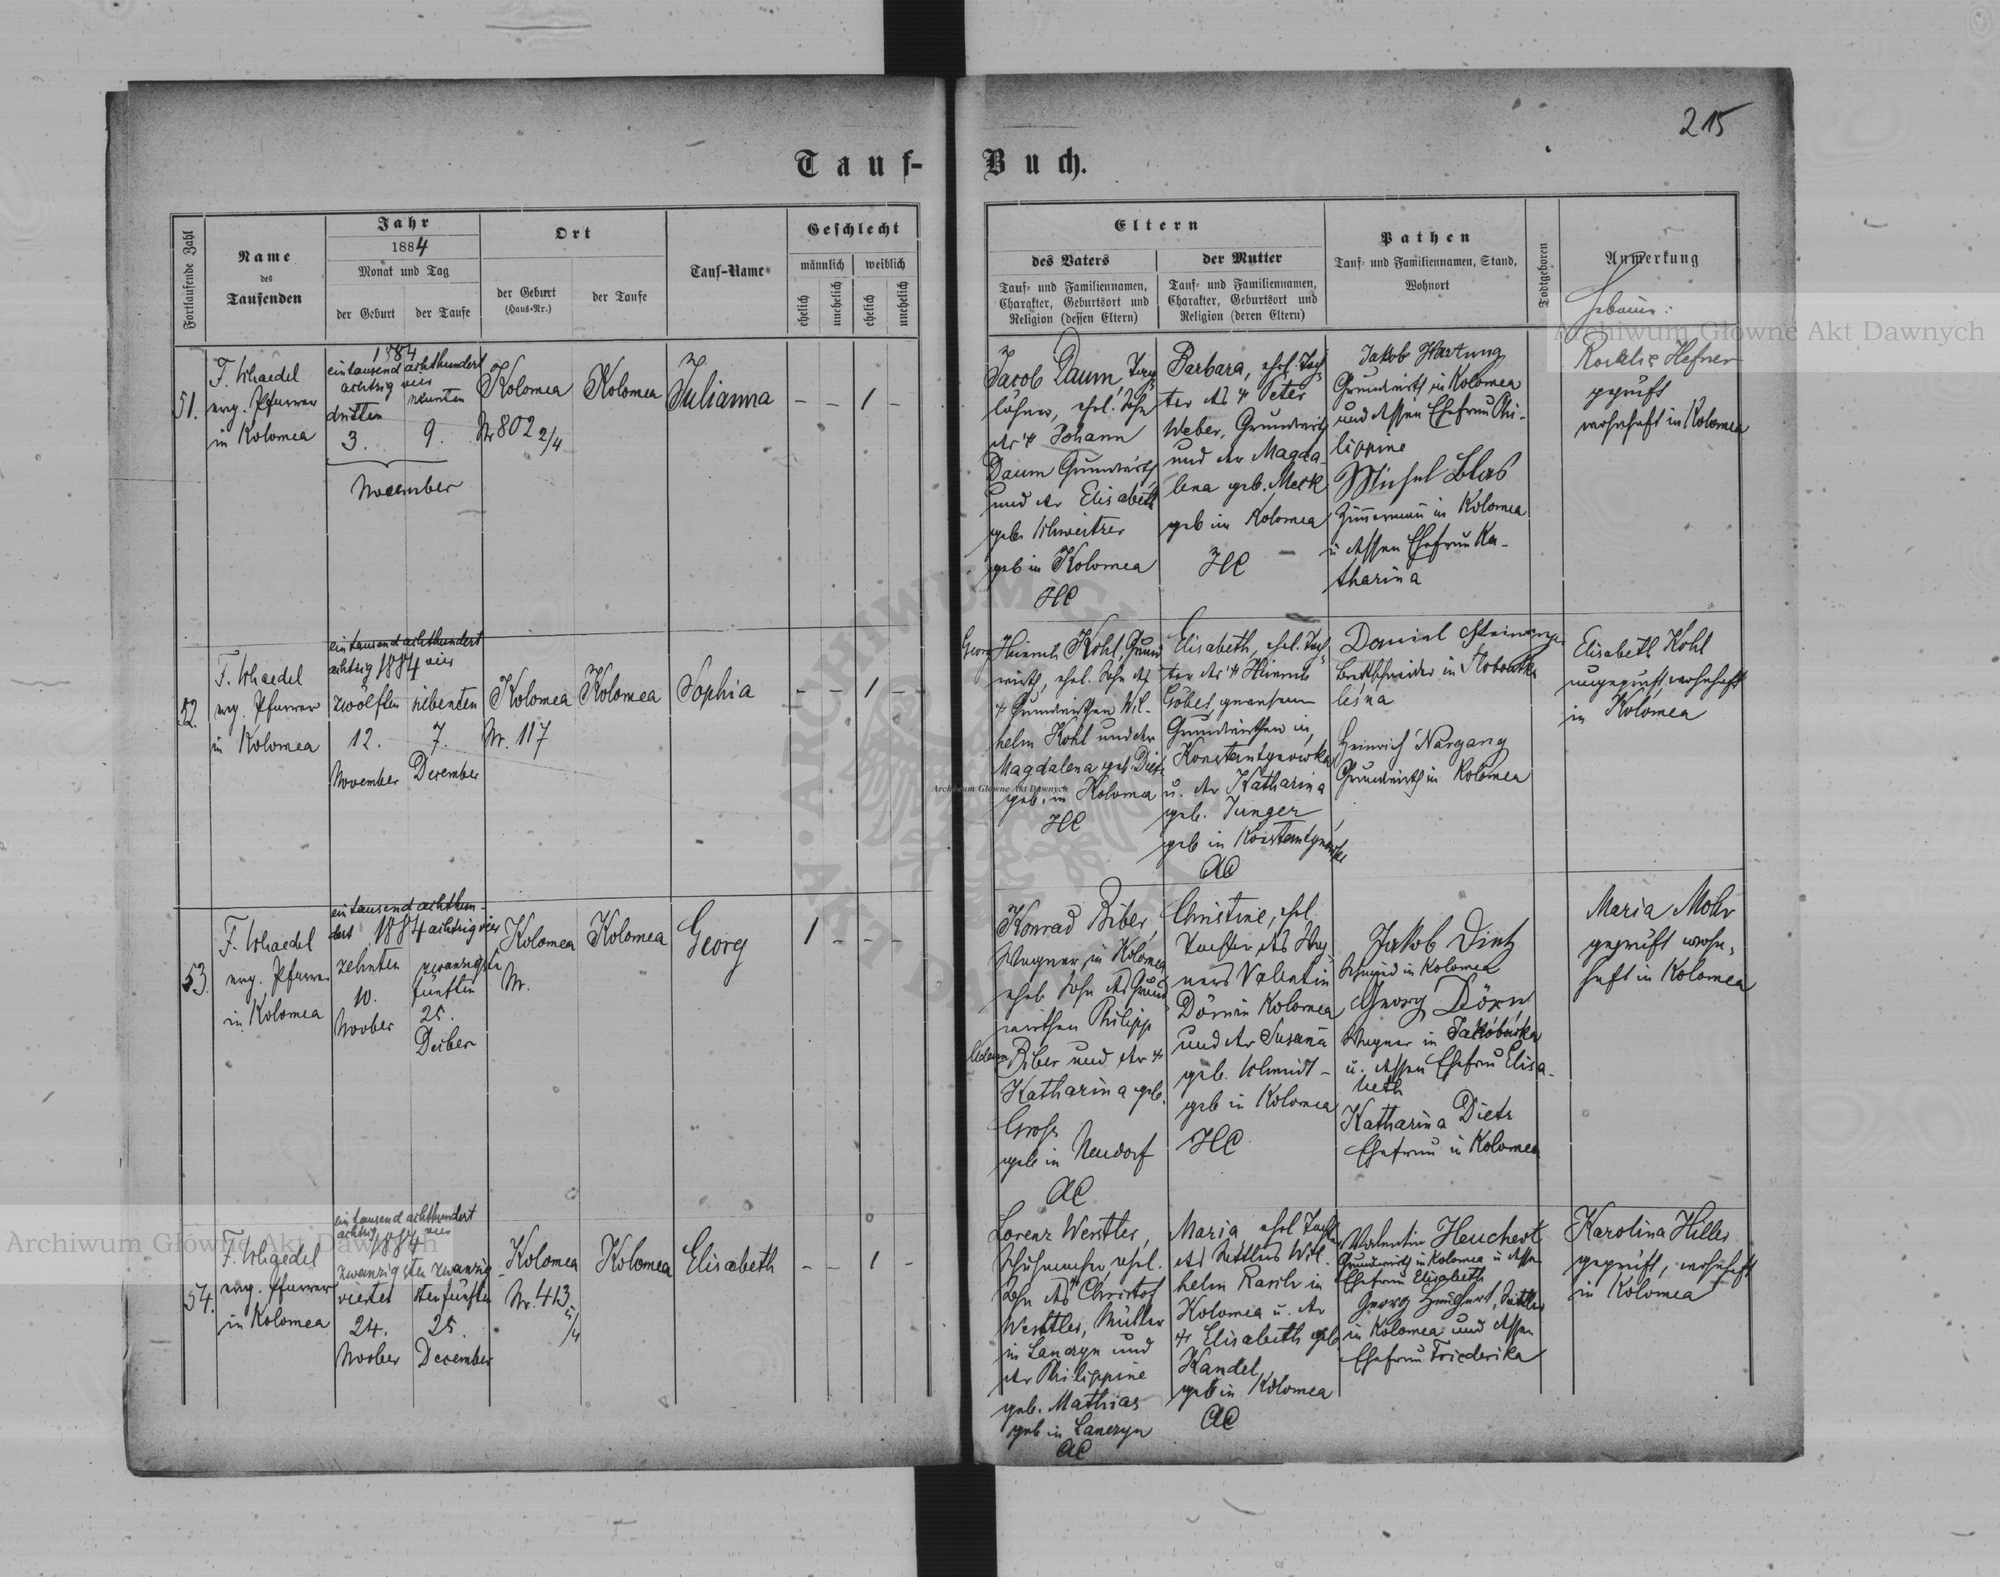 215
Tauf-Buch.
Fortlaufende Zahl
Name
des
Taufenden
Jahr
1884
Monat und Tag
der Geburt
der Taufe
Ort
der Geburt
(Haus-Nr.)
der Taufe
Tauf-Name
Geschlecht
männlich
weiblich
ehelich
unehelich
ehelich
unehelich
Eltern
des Vaters
Tauf- und Familiennamen,
Charakter, Geburtsort und
Religion (dessen Eltern)
der Mutter
Tauf- und Familiennamen,
Charakter, Geburtsort und
Religion (deren Eltern)
Pathen
Tauf- und Familiennamen, Stand,
Wohnort
Todtgeboren
Anmerkung
51.
F. Schaedel
evg. Pfarrer
in Kolomea
1884
eintausend achthundert
achtzig vier
dritten
neunten
3.
9.
November
Kolomea
Nr 802 2/4
Kolomea
Julianna
– – 1 –
Jacob Daum, Tag-
löhner, ehel. Sohn
des + Johann
Daum Grundwirth
und der Elisabeth
geb. Schweitzer
geb in Kolomea
HC
Barbara, ehel. Toch-
ter des + Peter
Weber, Grundwirth
und der Magda-
lena geb. Merk
geb in Kolomea
HC
Jakob Hartung
Grundwirth in Kolomea
und dessen Ehefrau Phi-
lippine
Michel Blas
Zimmermann in Kolomea
u dessen Ehefrau Ka-
tharina
Hebamme:
Hefner
geprüft
wohnhaft in Kolomea
52.
F. Schaedel
evg. Pfarrer
in Kolomea
eintausend achthundert
achtzig 1884 vier
zwölften
siebenten
12.
7.
November
December
Kolomea
Nr. 117
Kolomea
Sophia
– – 1 –
Georg Heinrich Kohl, Grund-
wirth, ehel. Sohn des
+ Grundwirthen Wil-
helm Kohl und der
Magdalena geb. Dietz
geb. in Kolomea
HC
Elisabeth, ehel. Toch-
ter des + Heinrich
Göbel, gewesenen
Grundwirthen in
Konstantynowka
u. der Katharina
geb. Junger
geb in Konstantynowka
AC
Daniel
Brettschneider in Slobodka
leśna
Heinrich Nargang
Grundwirth in Kolomea
Elisabeth Kohl
ungeprüft wohnhaft
in Kolomea
53.
F. Schaedel
evg. Pfarrer
in Kolomea
ein tausend achthun-
dert 1884 achtzig vier
zehnten
zwanzigsten
fünften
10.
25.
Novber
Decber
Kolomea
Nr.
Kolomea
Georg
1 – – –
Konrad Biber,
Wagner in Kolomea
ehel. Sohn des Grund-
wirthen Philipp
Biber und der +
Katharina geb.
Groß
geb in Neudorf
AC
Christine, ehel.
Tochter des Wag-
ners Valentin
Dörn in Kolomea
und der Susana
geb. Schmidt
geb in Kolomea
HC
Jakob Dietz
Schmied in Kolomea
Georg Dörn
Wagner in Jakobówka
u. dessen Ehefrau Elisa-
beth
Katharina Dietz
Ehefrau in Kolomea
Maria Mohr
geprüft wohn-
haft in Kolomea
54.
F. Schaedel
evg. Pfarrer
in Kolomea
ein tausend achthundert
achtzig 1884 vier
zwanzigsten zwanzig-
vierter
sten fünften
24.
25.
Novber
December
Kolomea
Nr. 413
Kolomea
Elisabeth
– – 1 –
Lorenz Westler,
Schuhmacher, ehel.
Sohn des + Christof
Westler, Müller
in Lanczyn und
der Philippine
geb. Mathias
geb in Lanczyn
AC
Maria, ehel. Tochter
des Sattlers Wil-
helm in
Kolomea u. der
+ Elisabeth geb
Kandel
geb in Kolomea
AC
Valentin Heuchert
Grundwirth in Kolomea u dessen
Ehefrau Elisabeth
Georg Heuchert, Sattler
in Kolomea und dessen
Ehefrau Friederika
Karolina Hiller
geprüft, wohnhaft
in Kolomea
Archiwum Główne Akt Dawnych
Archiwum Główne Akt Dawnych
Archiwum Główne Akt Dawnych